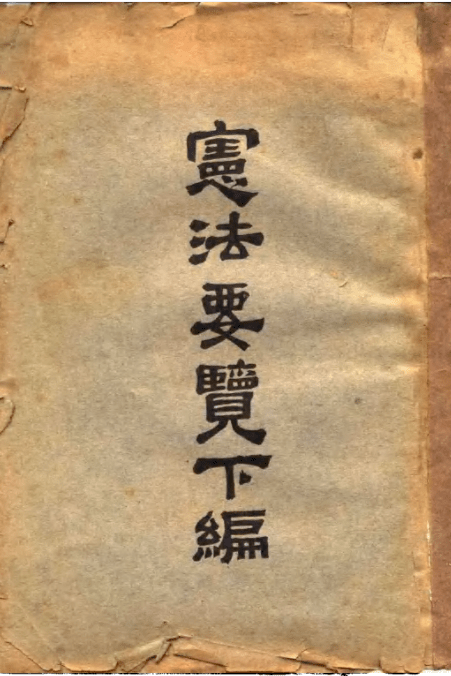 憲法要覽下編